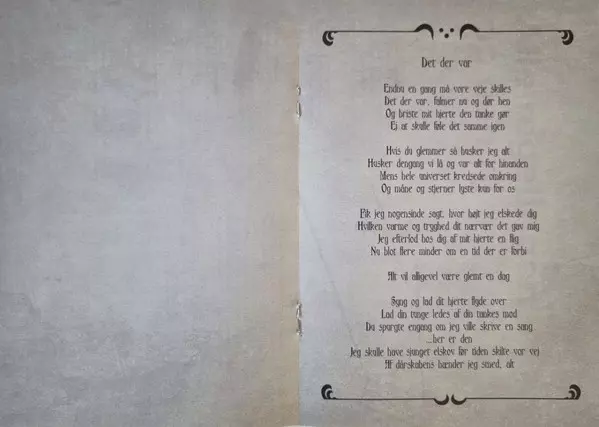 Det der var
Endnu en gang må vore veje skilles
Det der var, falmer nu og dør hen
Og briste mit hjerte den tanke gør
Ej at skulle føle det samme igen
Hvis du glemmer så husker jeg alt
Husker dengang vi lå og var alt for hinanden
Mens hele universet kredsede omkring
Og måne og stjerner lyste kun for os
Fik jeg nogensinde sagt, hvor højt jeg elskede dig
Hvilken varme og tryghed dit nærvær det gav mig
Jeg efterlod hos dig af mit hjerte en flig
Nu blot flere minder om en tid der er forbi
Alt vil alligevel være glemt en dag
Syng og lad dit hjerte flyde over
Lad din tunge ledes af din tankes mod
Du spurgte engang om jeg ville skrive en sang
...her er den
Jeg skulle have sjunget elskov før tiden skilte vor vej
Af dårskabens bænder jeg smed, alt